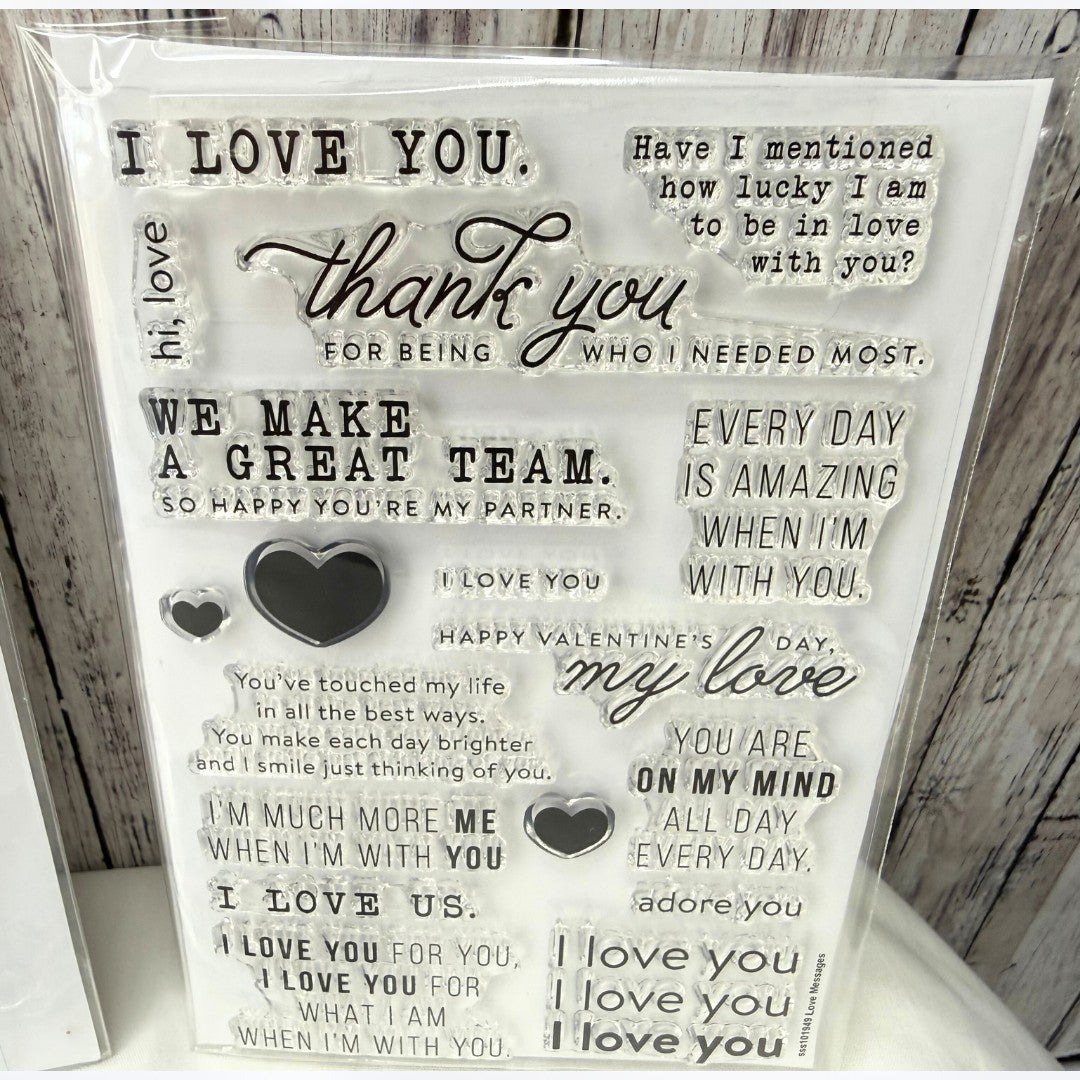 I LOVE YOU.
Have I mentioned
how lucky I am
to be in love
with you?
hi, love
thank you
FOR BEING WHO I NEEDED MOST.
WE MAKE
A GREAT TEAM.
SO HAPPY YOU'RE MY PARTNER.
EVERY DAY
IS AMAZING
WHEN I'M
WITH YOU.
I LOVE YOU
HAPPY VALENTINE'S DAY,
my love
You've touched my life
in all the best ways.
You make each day brighter
and I smile just thinking of you.
YOU ARE
ON MY MIND
ALL DAY
EVERY DAY.
I'M MUCH MORE ME
WHEN I'M WITH YOU
I LOVE US.
adore you
I LOVE YOU FOR YOU,
I LOVE YOU FOR
WHAT I AM
WHEN I'M WITH YOU.
I love you
I love you
I love you
sss101949 Love Messages